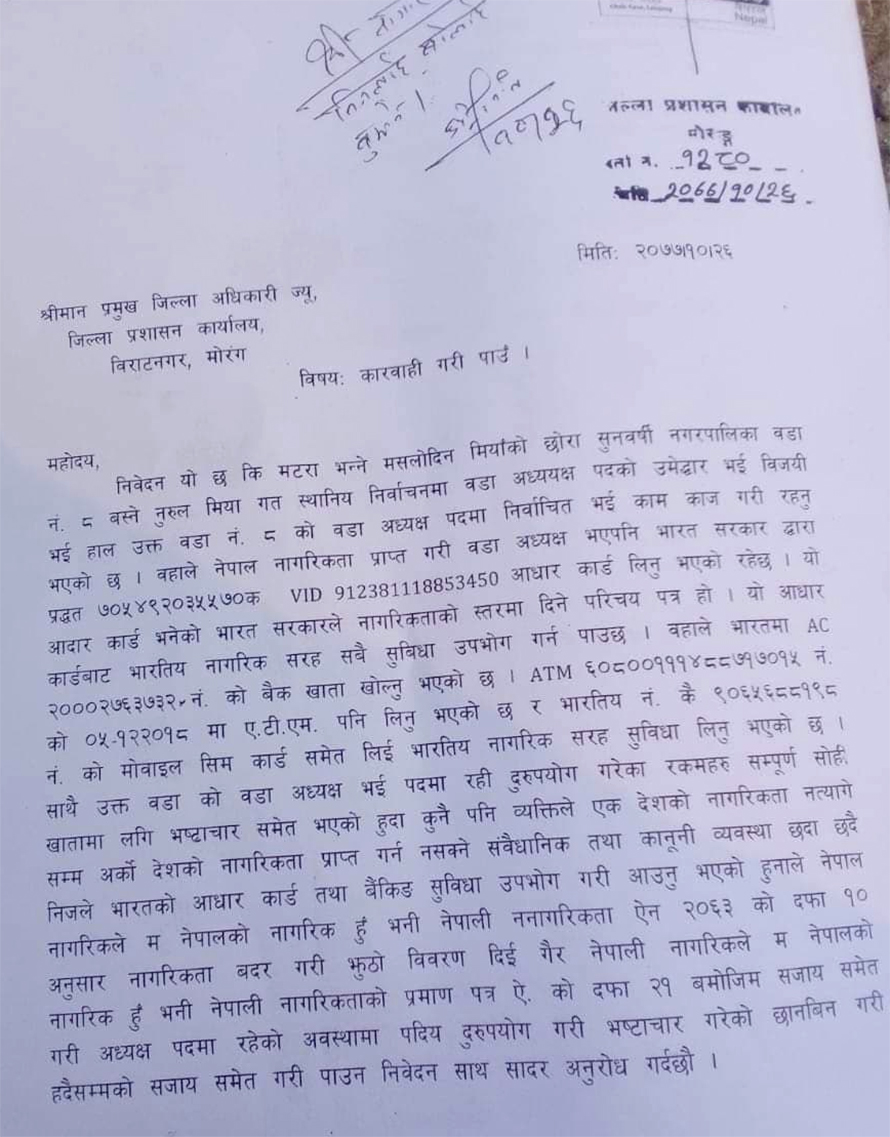 Nepal
जिल्ला प्रशासन कार्यालय
मोरङ्ग
दर्ता नं. १२८०
मिति २०७७/१०/२६
मिति: २०७७।१०।२६
श्रीमान प्रमुख जिल्ला अधिकारी ज्यू,
जिल्ला प्रशासन कार्यालय,
विराटनगर, मोरंग
विषय: कारवाही गरी पाउँ ।
महोदय,
निवेदन यो छ कि मटरा भन्ने मसलोदिन मियाँको छोरा सुनवर्षी नगरपालिका वडा
नं. ८ बस्ने नुरुल मिया गत स्थानिय निर्वाचनमा वडा अध्ययक्ष पदको उमेद्धार भई विजयी
भई हाल उक्त वडा नं. ८ को वडा अध्यक्ष पदमा निर्वाचित भई काम काज गरी रहनु
भएको छ । वहाले नेपाल नागरिकता प्राप्त गरी वडा अध्यक्ष भएपनि भारत सरकार द्वारा
प्रद्धत ७०५४९२०३५५७०क VID 912381118853450 आधार कार्ड लिनु भएको रहेछ । यो
आदार कार्ड भनेको भारत सरकारले नागरिकताको स्तरमा दिने परिचय पत्र हो । यो आधार
कार्डबाट भारतिय नागरिक सरह सबै सुविधा उपभोग गर्न पाउछ । वहाले भारतमा AC
२०००२७६३७३२ नं. को बैक खाता खोल्नु भएको छ । ATM ६०८००१११४८८७१७०१५ नं.
को ०५-१२२०१८ मा ए.टी.एम. पनि लिनु भएको छ र भारतिय नं. कै ९०६५६८८१९८
नं. को मोवाइल सिम कार्ड समेत लिई भारतिय नागरिक सरह सुविधा लिनु भएको छ ।
साथै उक्त वडा को वडा अध्यक्ष भई पदमा रही दुरुपयोग गरेका रकमहरु सम्पूर्ण सोही
खातामा लगि भष्टाचार समेत भएको हुदा कुनै पनि व्यक्तिले एक देशको नागरिकता नत्यागे
सम्म अर्को देशको नागरिकता प्राप्त गर्न नसक्ने संवैधानिक तथा कानूनी व्यवस्था छदा छदै
निजले भारतको आधार कार्ड तथा बैंकिङ सुविधा उपभोग गरी आउनु भएको हुनाले नेपाल
नागरिकले म नेपालको नागरिक हुँ भनी नेपाली ननागरिकता ऐन २०६३ को दफा १०
अनुसार नागरिकता बदर गरी झुठो विवरण दिई गैर नेपाली नागरिकले म नेपालको
नागरिक हुँ भनी नेपाली नागरिकताको प्रमाण पत्र ऐ. को दफा २१ बमोजिम सजाय समेत
गरी अध्यक्ष पदमा रहेको अवस्थामा पदिय दुरुपयोग गरी भष्टाचार गरेको छानबिन गरी
हदैसम्मको सजाय समेत गरी पाउन निवेदन साथ सादर अनुरोध गर्दछौ ।